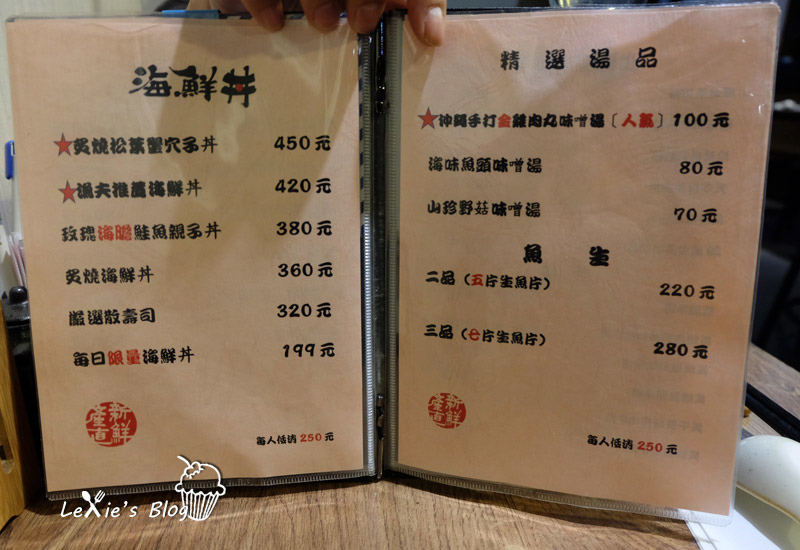 海鮮丼
★炙燒松葉蟹穴子丼 450元
★漁夫推薦海鮮丼 420元
玫瑰海膽鮭魚親子丼 380元
炙燒海鮮丼 360元
嚴選散壽司 320元
每日限量海鮮丼 199元
新鮮
產直
每人低消 250元
精選湯品
★沖繩手打金雞肉丸味噌湯〔人氣〕100元
海味魚頭味噌湯 80元
山珍野菇味噌湯 70元
魚生
二品（五片生魚片） 220元
三品（七片生魚片） 280元
新鮮
產直
每人低消 250元
LeXie's Blog